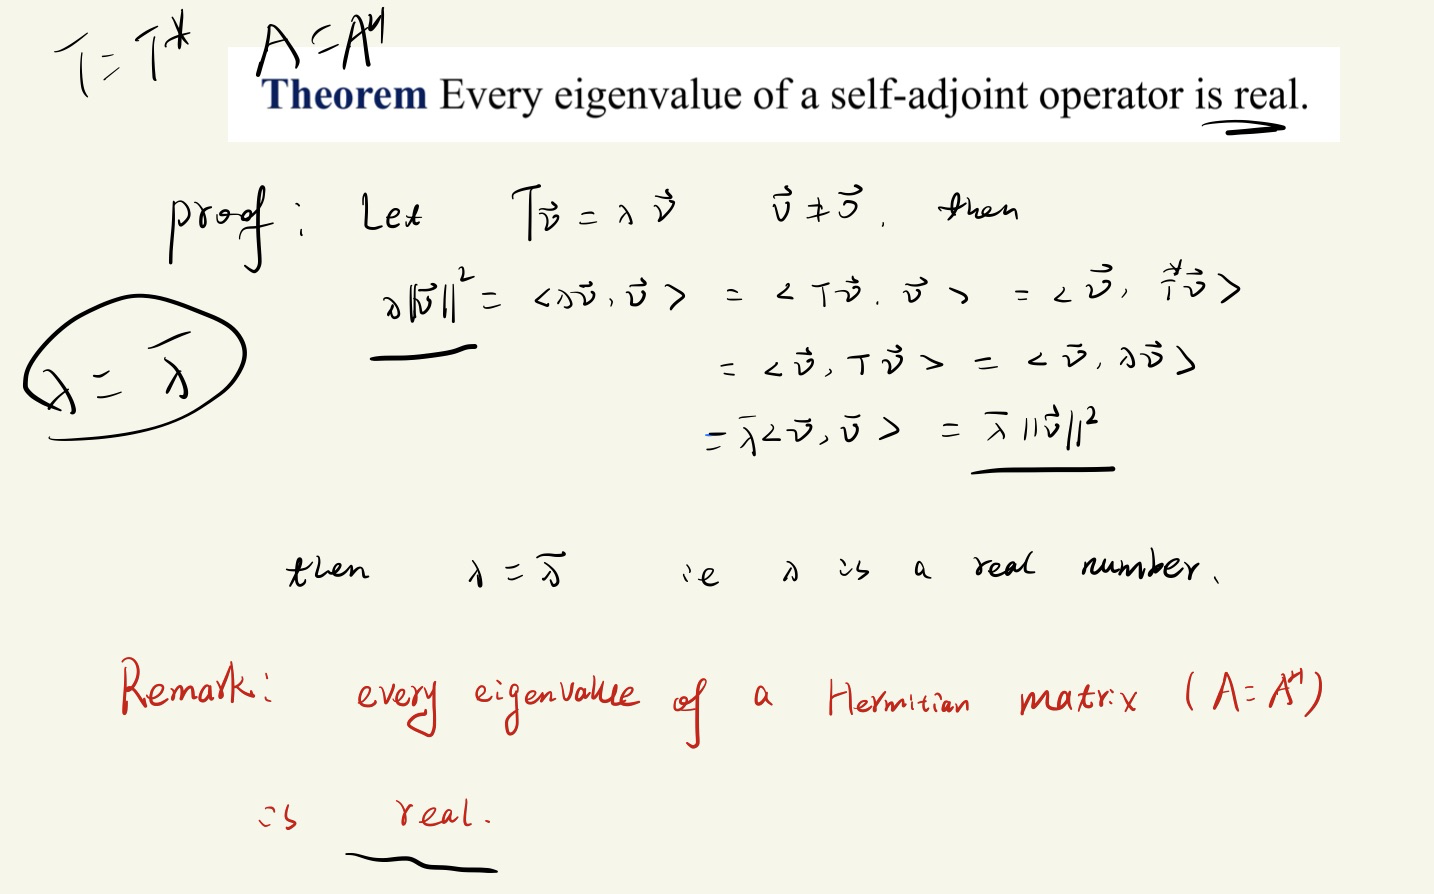 T = T* A = Aᴴ
Theorem Every eigenvalue of a self-adjoint operator is real.
proof: Let Tv⃗ = λv⃗ v⃗ ≠ 0⃗, then
λ||v⃗||² = <λv⃗, v⃗> = <Tv⃗, v⃗> = <v⃗, T*v⃗>
= <v⃗, Tv⃗> = <v⃗, λv⃗>
λ = λ̄
= λ̄<v⃗, v⃗> = λ̄||v⃗||²
then λ = λ̄ ie λ is a real number.
Remark: every eigenvalue of a Hermitian matrix (A = Aᴴ)
is real.